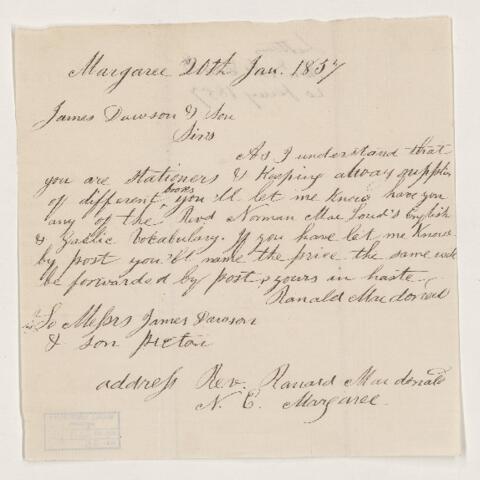 Margaree 20th Jan. 1857
James Dawson & Son
Sirs
As I understand that
you are Stationers & Keeping alway supplies
of different books you'll let me Know have you
any of the Revd Norman Mac Loud's English
& Gaelic Vocabulary. If you have let me Know
by post you'll name the price the same will
be forwarded by post & yours in haste
Ranald Macdonald
To Messrs James Dawson
& Son Picton
address Rev. Ranard Macdonald
N. E. Margaree